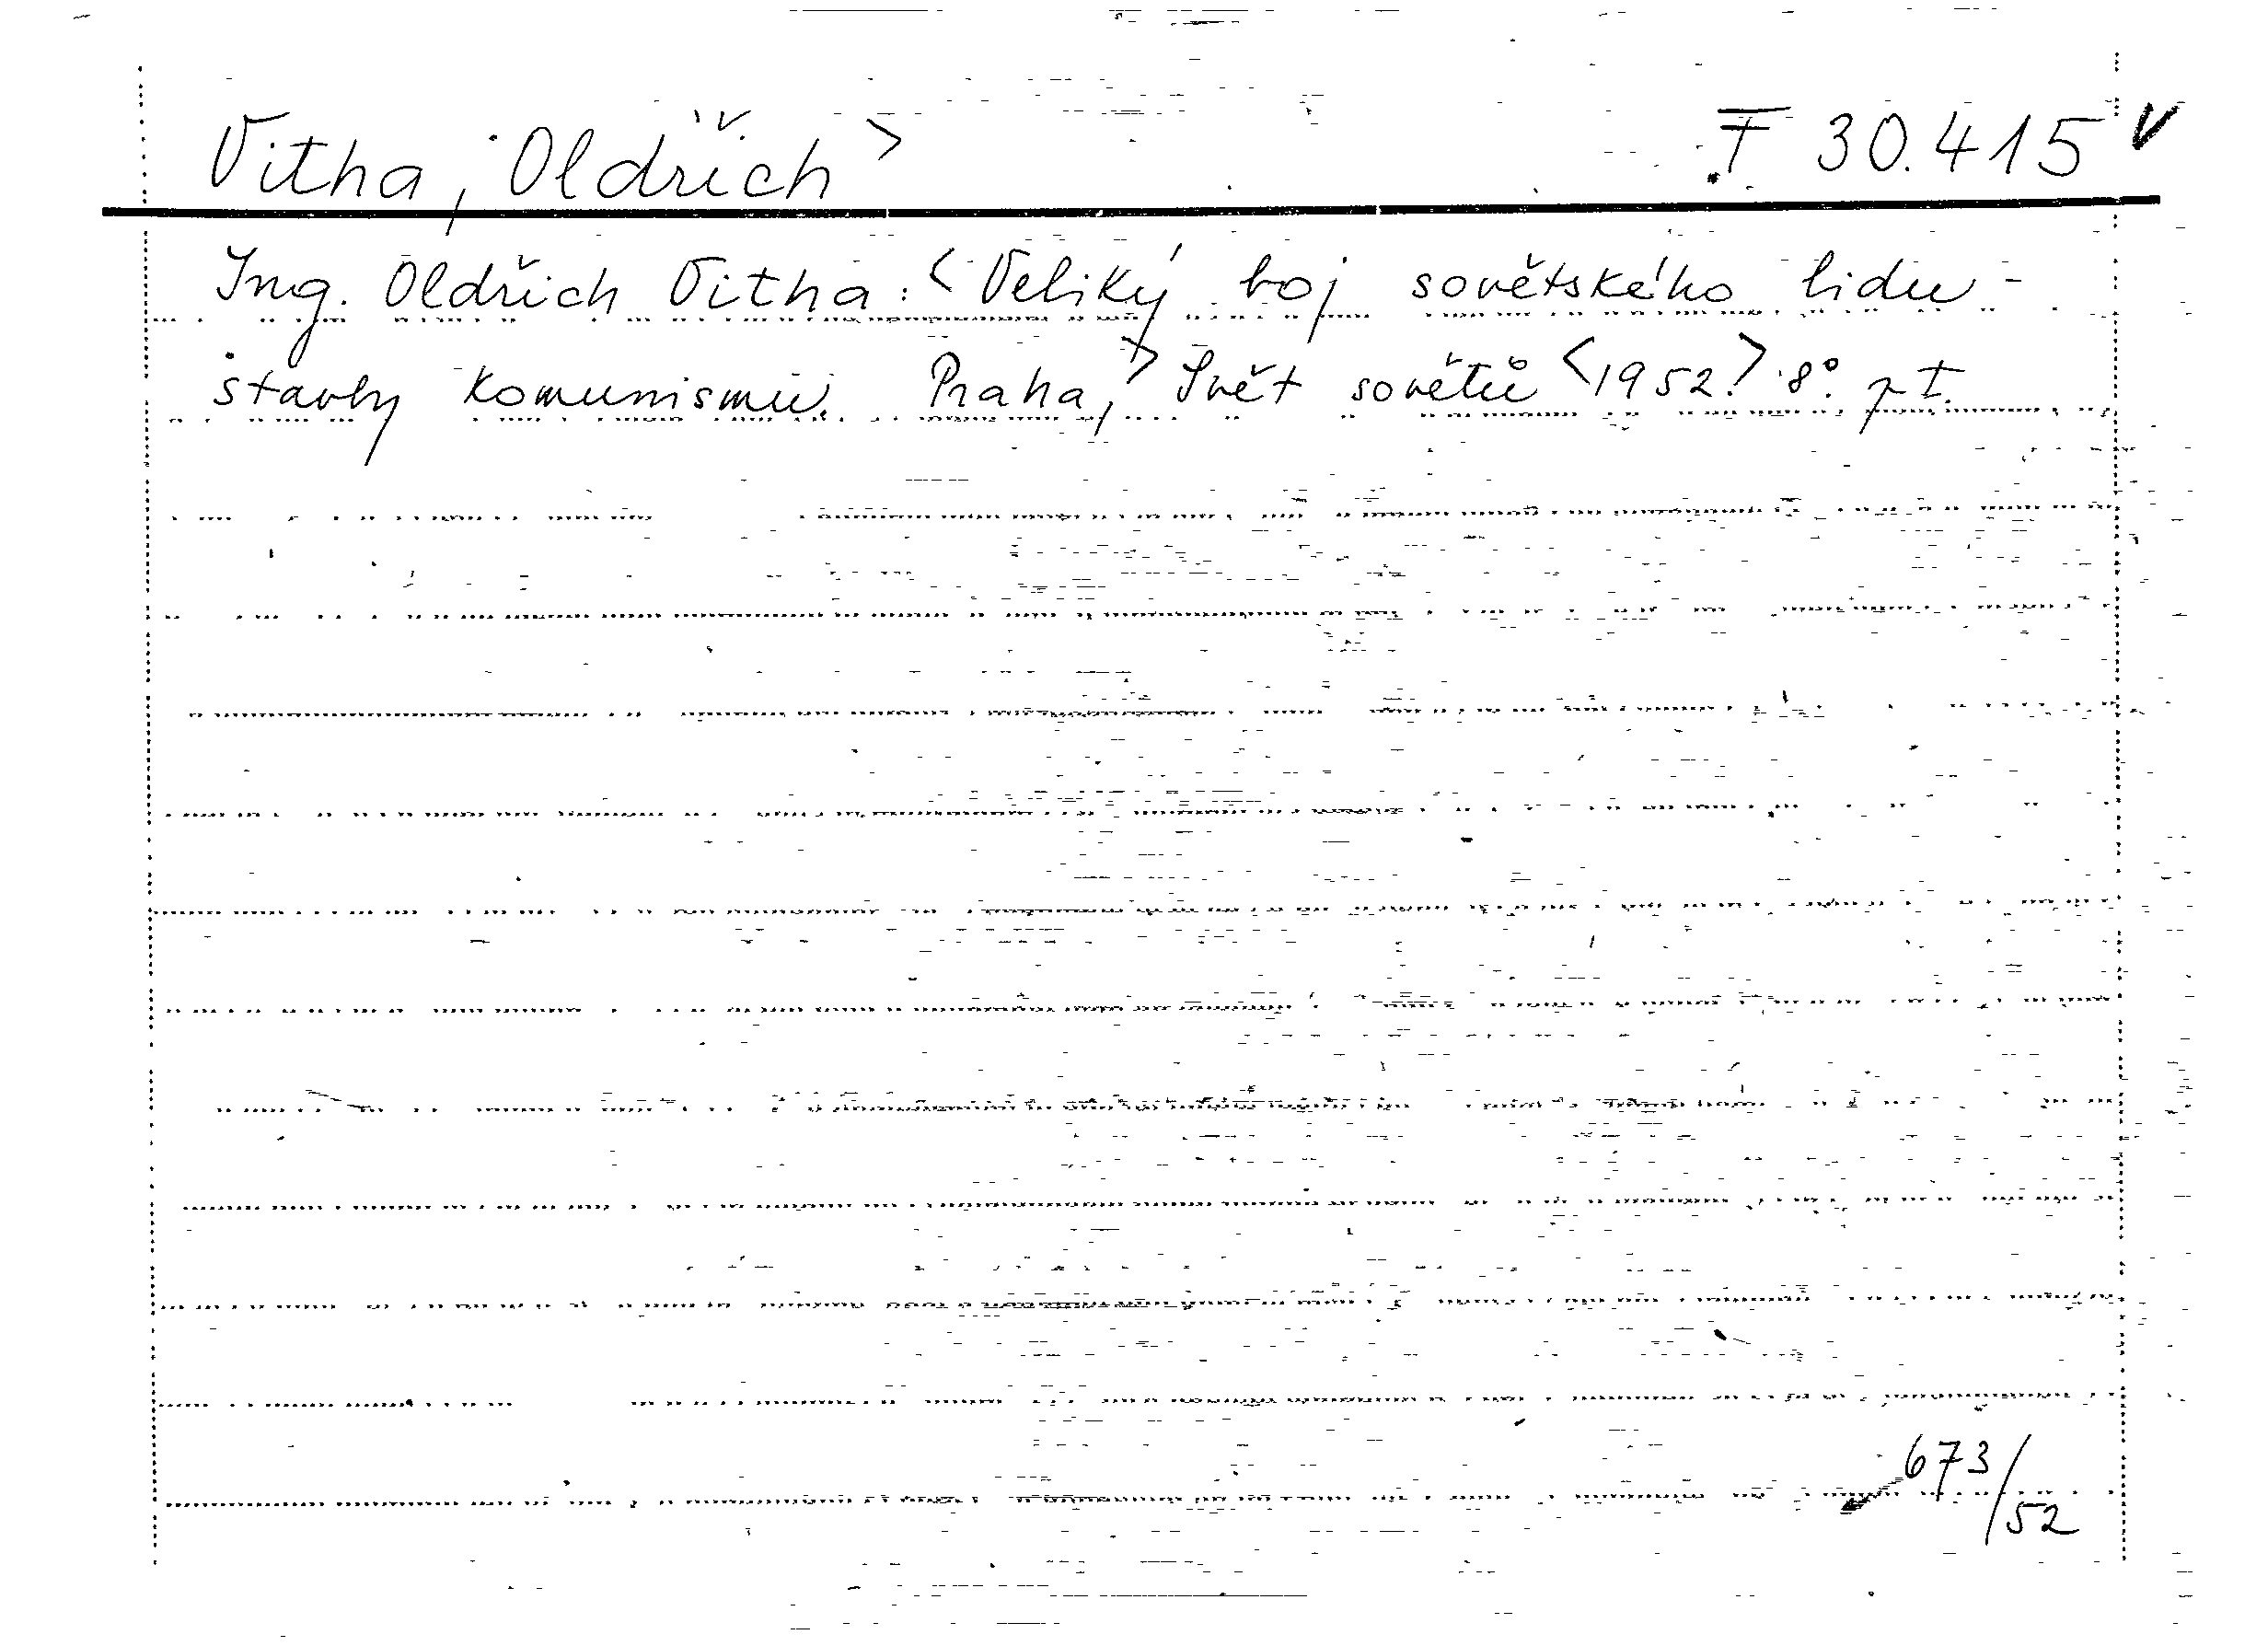 Vitha, Oldřich> F 30.415 v
Ing. Oldřich Vitha: <Veliký boj sovětského lidu -
stavby komunismu. Praha,> Svět sovětů <1952.> 8°.
673/52